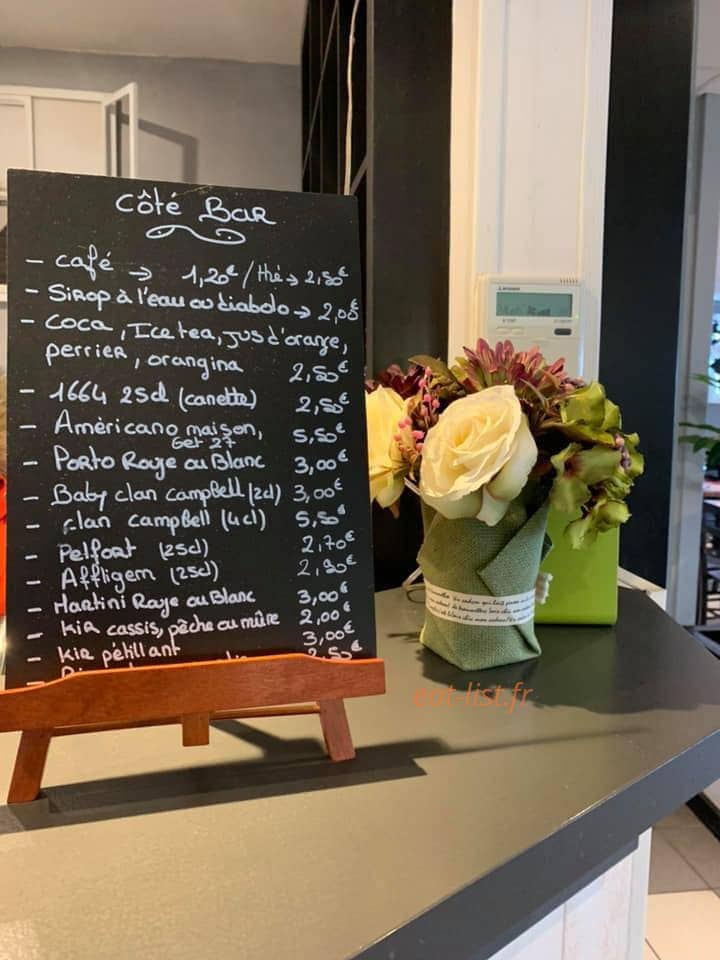 Côté Bar
- café → 1,20€ / thé → 2,50€
- Sirop à l'eau ou diabolo → 2,00€
- Coca, Ice tea, jus d'orange,
perrier, orangina 2,50€
- 1664 25cl (canette) 2,50€
- Américano maison, 5,50€
Get 27
- Porto Rouje ou Blanc 3,00€
- Baby clan campbell (2cl) 3,00€
- clan campbell (4cl) 5,50€
- Pelfort (25cl) 2,70€
- Affligem (25cl) 2,90€
- Martini Rouje ou Blanc 3,00€
- kir cassis, pêche ou mûre 2,00€
- kir pétillant 3,00€
2,50€
eat-list.fr